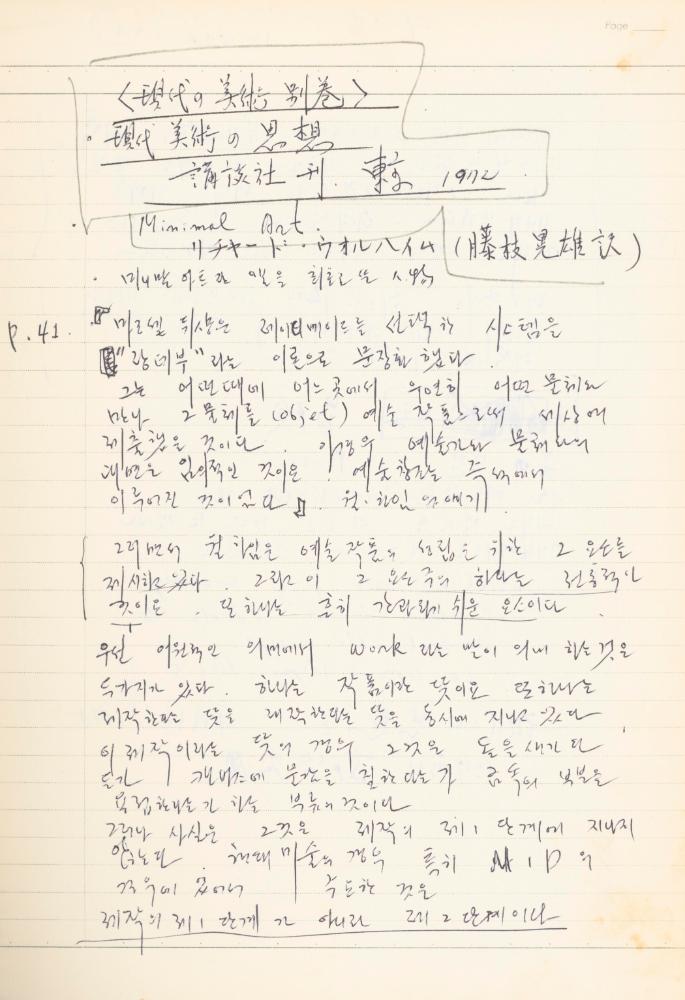 Page
〈現代の美術 別巻〉
・現代美術の思想
講談社 刊. 東京 1972
・Minimal Art.
リチャード・ウオルハイム (藤枝晃雄 訳)
・미니말 아트란 말을 최초로 쓴 사람
p.41. 『마르셀 뒤샹은 레이디메이드를 선택한 시스템을
"랑데부"라는 이론으로 문장화 했다.
그는 어떤때에 어느 곳에서 우연히 어떤 물체와
만나 그 물체를 (objet) 예술 작품으로써 세상에
제출했을 것이다. 이 경우 예술가와 물체와의
대면은 임의적인 것이요. 예술창조는 즉석에서
이루어진 것이었다』. 월·하임 얘기
그러면서 월하임은 예술작품의 성립을 위한 그 요소를
제시하고 있다. 그리고 이 그 요소 중의 하나는 전통적인
것이요. 또 하나는 흔히 간과되기 쉬운 요소이다.
우선 어원적인 의미에서 work 라는 말이 의미 하는 것은
두가지가 있다. 하나는 작품이란 뜻이요 또하나는
제작한다는 뜻을 동시에 지니고 있다.
이 제작이라는 뜻의 경우 그것은 돌을 새긴다
든가 캔버스에 물감을 칠한다는가 금속의 부분을
용접한다는가 하는 부류의 것이다
그러나 사실은 그것은 제작의 제1 단계에 지나지
않는다. 현대미술의 경우 특히 M I D 의
경우에 있어서 주요한 것은
제작의 제1 단계가 아니라 제2 단계이다